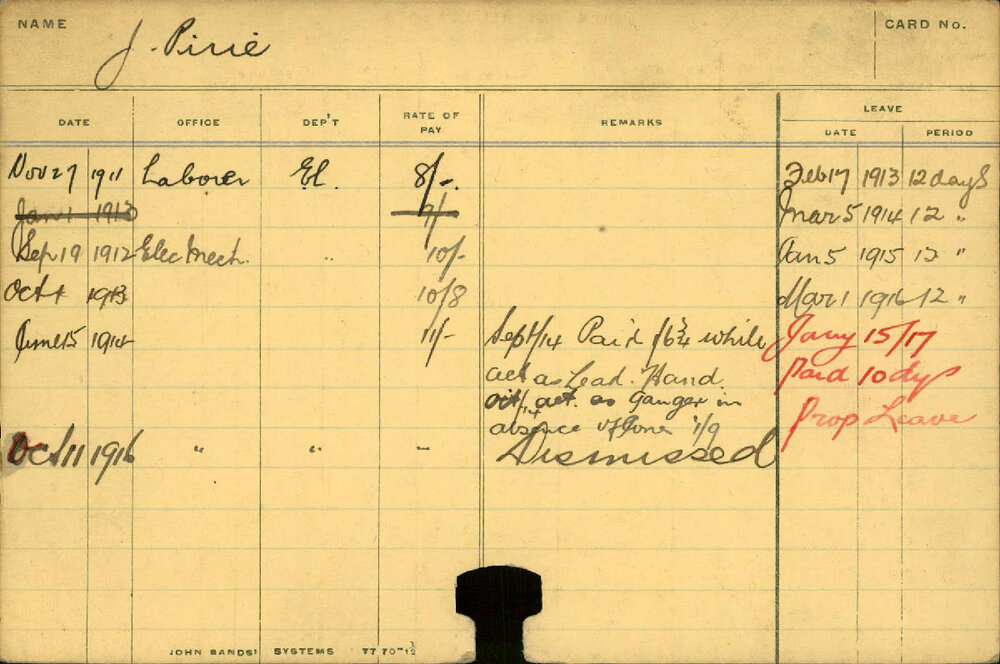 NAME J. Pirie CARD No.
DATE OFFICE DEP'T RATE OF PAY REMARKS LEAVE
DATE PERIOD
Nov 27 1911 Laborer El. 8/-. Feb 17 1913 12 days
Jan 1 1913 9/- Mar 5 1914 12 "
Sep 19 1912 Elec Mech. " 10/- Jan 5 1915 12 "
Oct 1 1913 10/8 Mar 1 1916 12 "
June 15 1914 11/- Sept 1/14 Paid while Jany 15/17
act as Lead. Hand. Paid 10 dys
act. as Ganger in Prop Leave
absence of Jones 1/9
Oct 11 1916 " " " Dismissed
JOHN SANDS' SYSTEMS